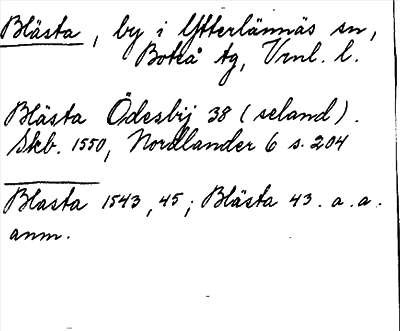 Blästa, by i Ytterlännäs sn,
Boteå tg, Vrnl. l.
Blästa Ödesbij 38 (seland).
Skb. 1550, Nordlander 6 s. 204
Blasta 1543, 45; Blästa 43. a. a.
anm.